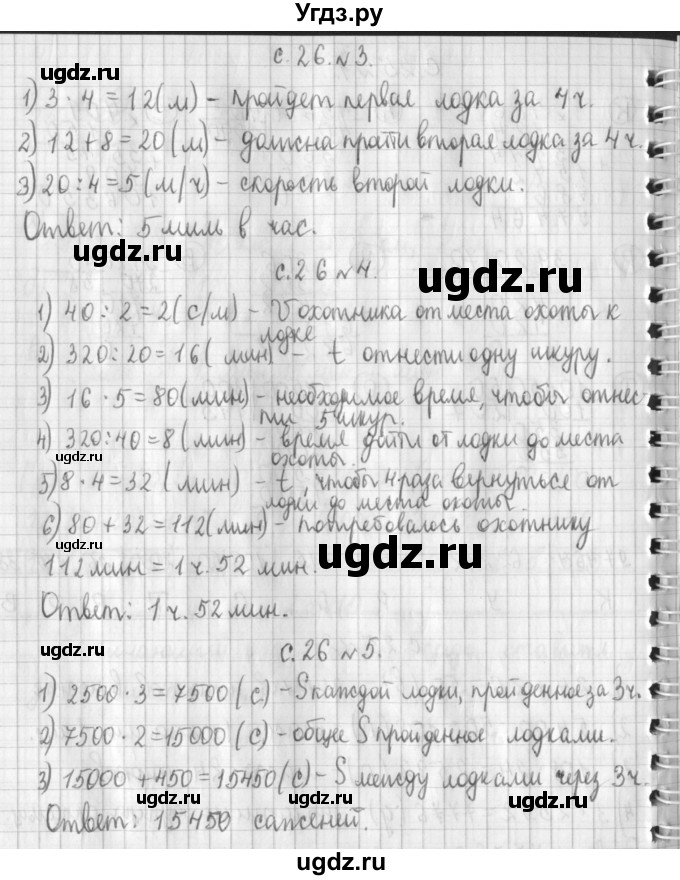 Угдз.ру
с. 26. №3.
ugdz.ru
ugdz.ru
1) 3 · 4 = 12 (м) – пройдет первая лодка за 4ч.
2) 12 + 8 = 20 (м) – должна пройти вторая лодка за 4ч.
3) 20 : 4 = 5 (м/ч) – скорость второй лодки.
Ответ: 5 миль в час.
ugdz.ru
ugdz.ru
с. 26 №4.
1) 40 : 2 = 2 (с/м) – V охотника от места охоты к
лодке
2) 320 : 20 = 16 (мин) – t отнести одну шкуру.
3) 16 · 5 = 80 (мин) – необходимое время, чтобы отнес-
ти 5 шкур.
4) 320 : 40 = 8 (мин) – время дойти от лодки до места
охоты.
ugdz.ru
5) 8 · 4 = 32 (мин) – t, чтобы 4 раза вернуться от
лодки до места охоты.
6) 80 + 32 = 112 (мин) – потребовалось охотнику
ugdz.ru
112 мин = 1 ч. 52 мин.
Ответ: 1 ч. 52 мин.
ugdz.ru
с. 26 №5.
1) 2500 · 3 = 7500 (с.) – S каждой лодки, пройденное за 3ч.
2) 7500 · 2 = 15000 (с) – общее S пройденное лодками.
3) 15000 + 450 = 15450 (с) – S между лодками через 3ч.
ugdz.ru
ugdz.ru
ugdz.ru
Ответ: 15450 саженей.
ugdz.ru